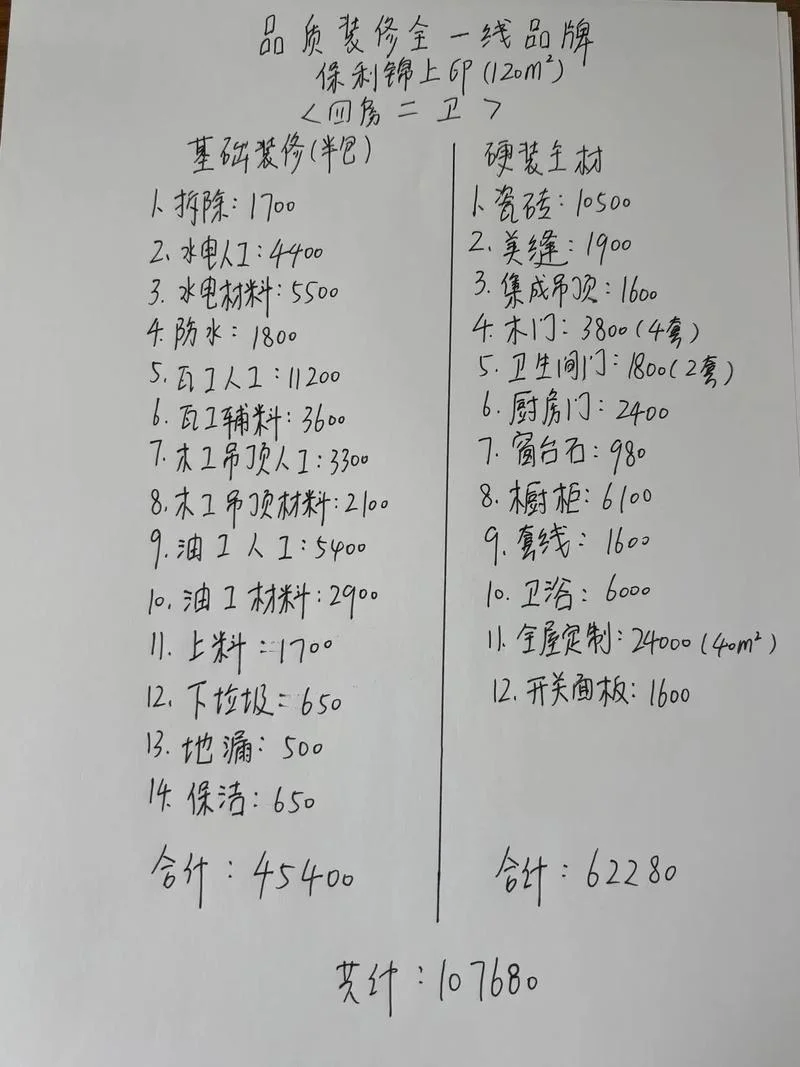 品质装修全一线品牌
保利锦上GP(120m²)
<四房二卫>
基础装修(半包)
1、拆除：1700
2、水电人工：4400
3、水电材料：5500
4、防水：1800
5、瓦工人工：11200
6、瓦工辅料：3600
7、木工吊顶人工：3300
8、木工吊顶材料：2100
9、油工人工：5400
10、油工材料：2900
11、上料：1700
12、下垃圾：650
13、地漏：500
14、保洁：650
合计：45400
硬装主材
1、瓷砖：10500
2、美缝：1900
3、集成吊顶：1600
4、木门：3800(4套)
5、卫生间门：1800(2套)
6、厨房门：2400
7、窗台石：980
8、橱柜：6100
9、套线：1600
10、卫浴：6000
11、全屋定制：24000(40m²)
12、开关面板：1600
合计：62280
共计：107680